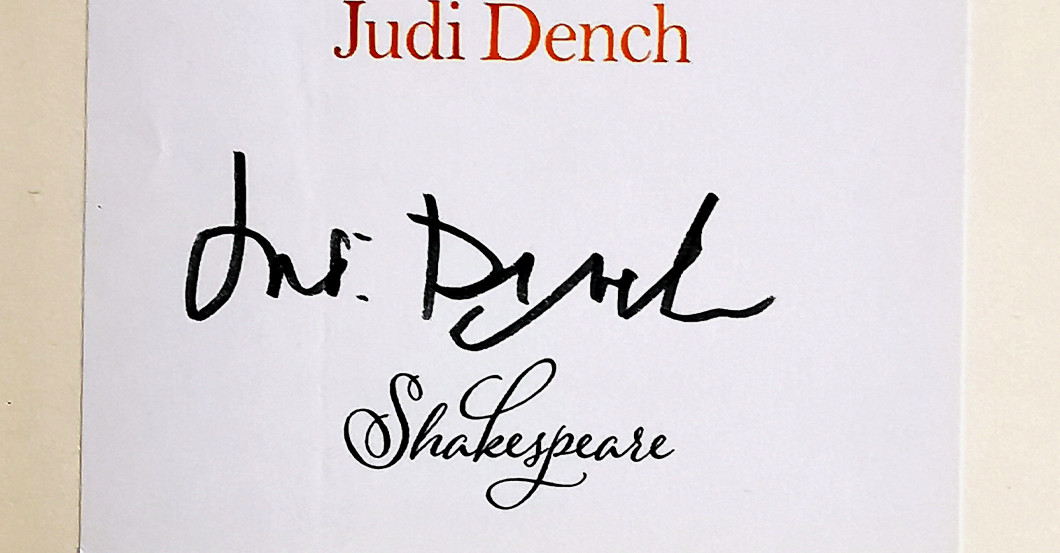 Judi Dench
Judi Dench
Shakespeare